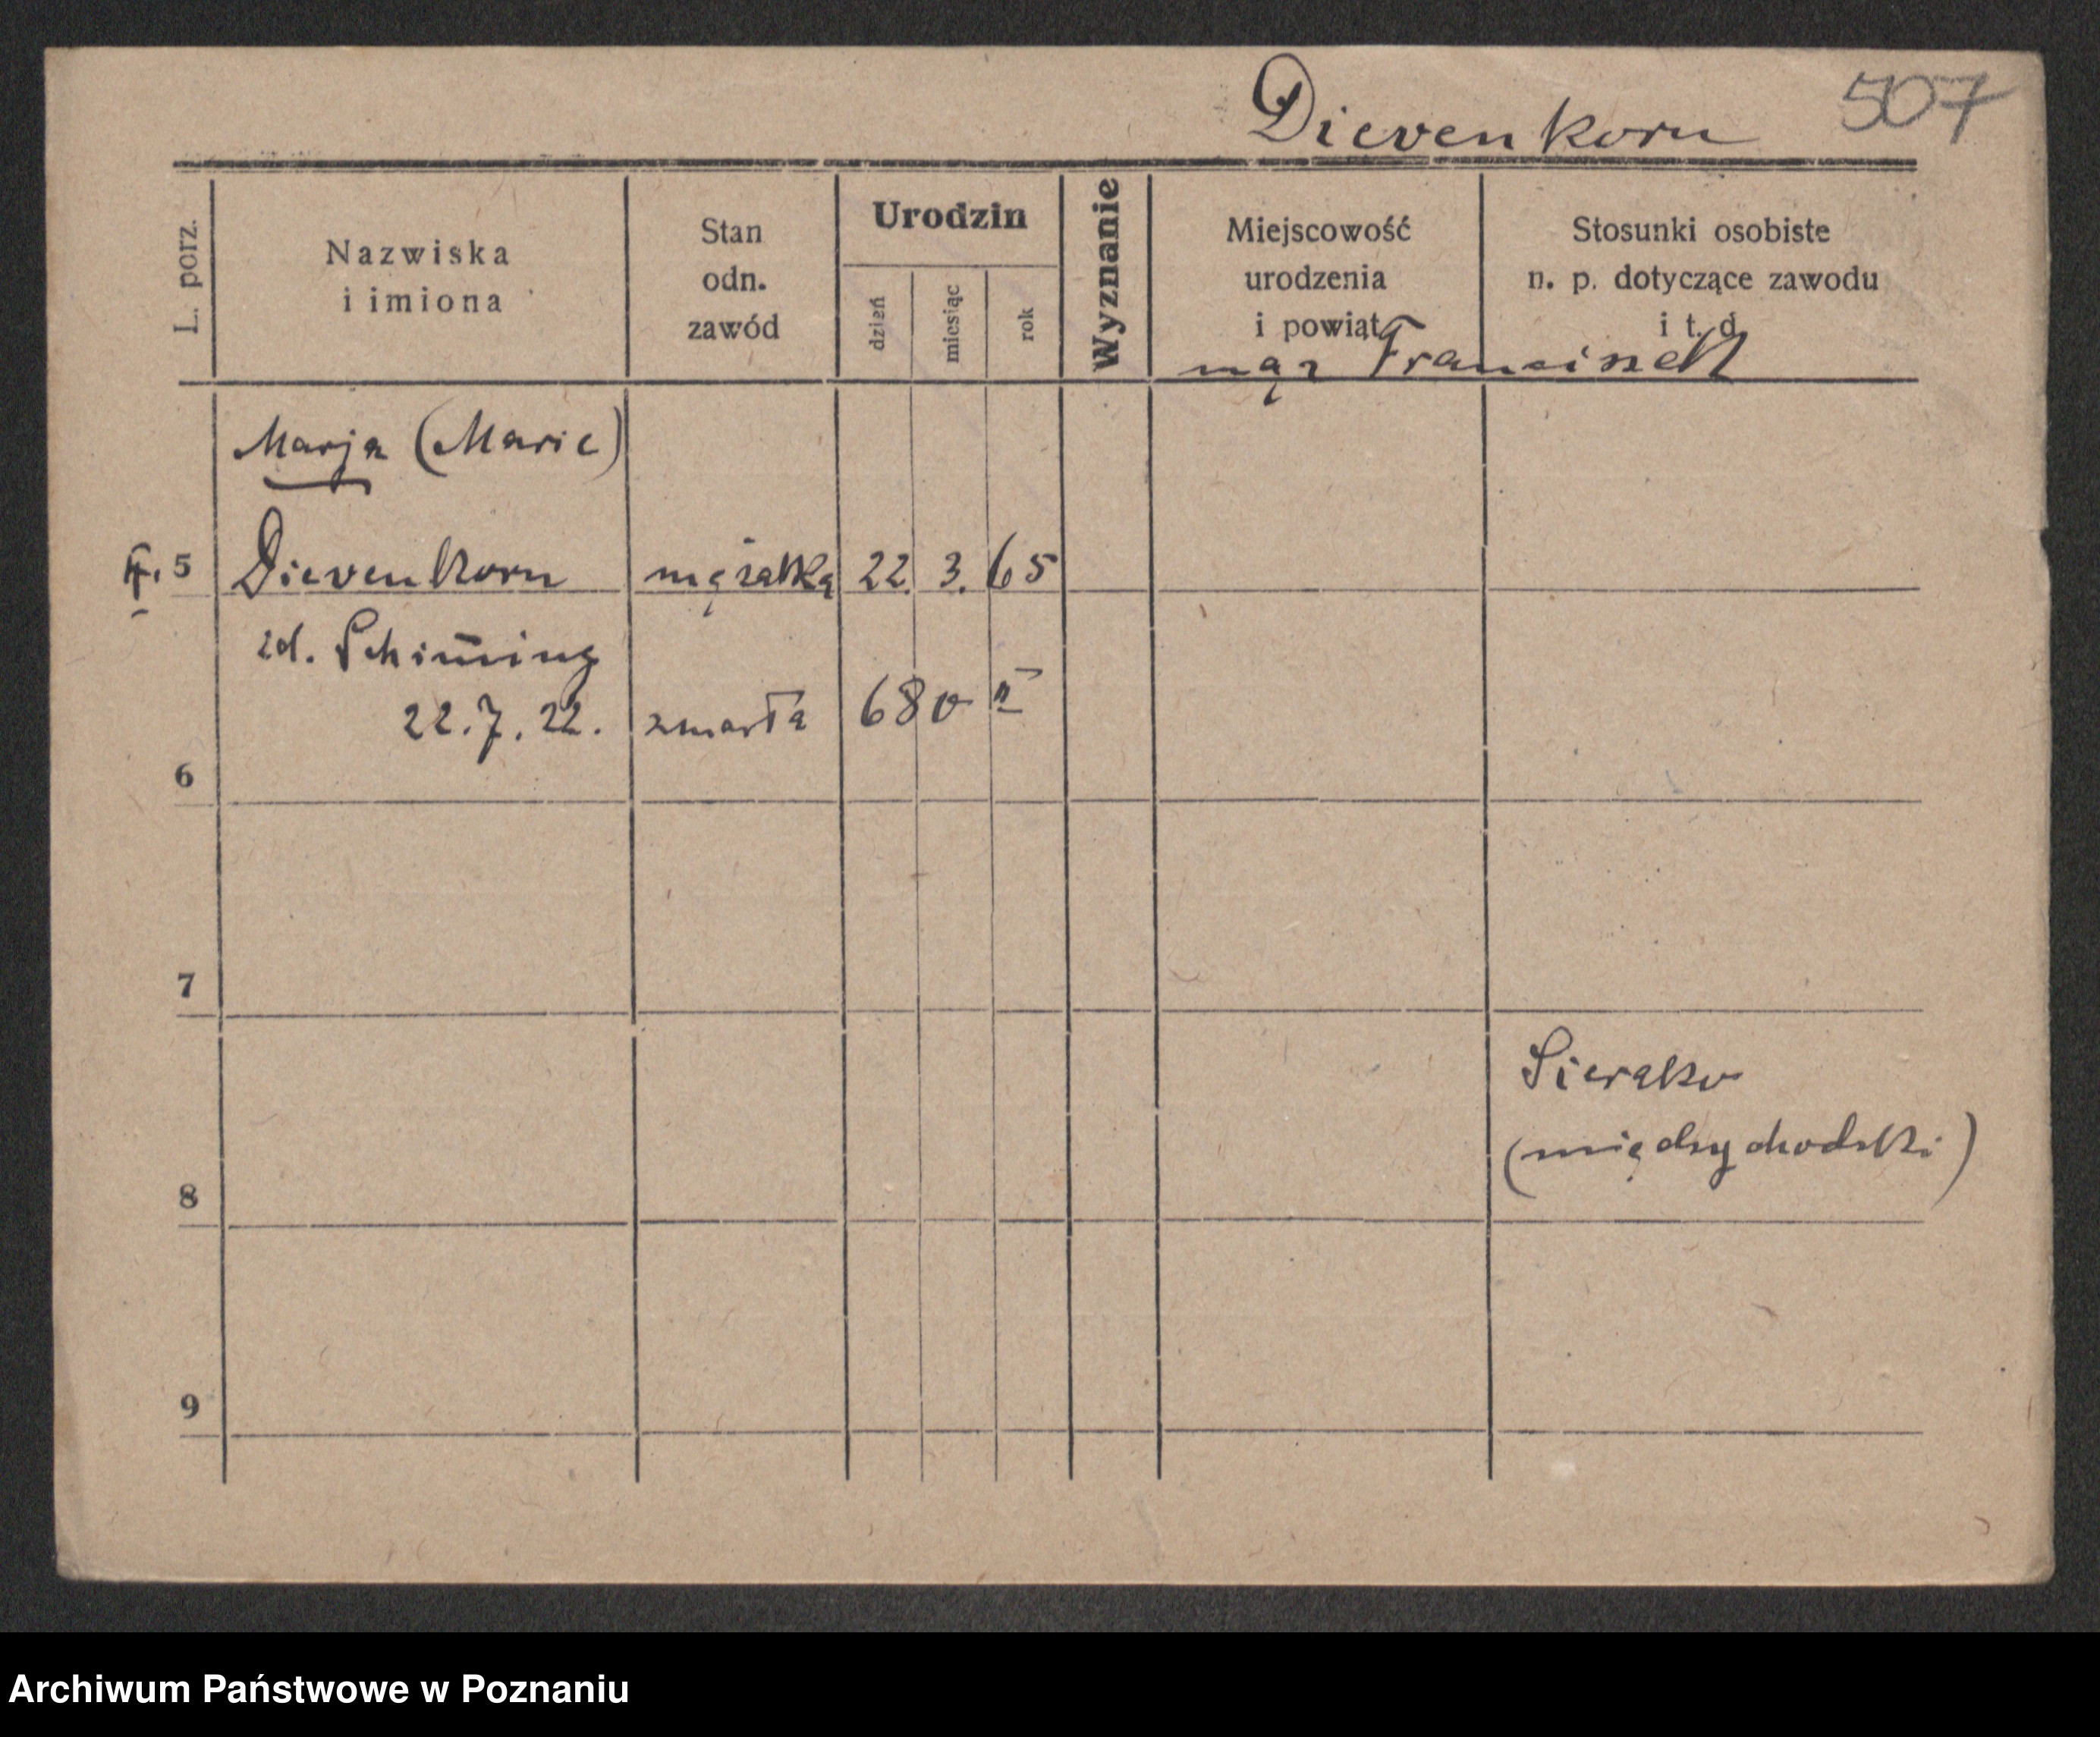 Dievenkorn 507
L. porz.
Nazwiska
i imiona
Stan
odn.
zawód
Urodzin
dzień
miesiąc
rok
Wyznanie
Miejscowość
urodzenia
i powiat
Stosunki osobiste
n. p. dotyczące zawodu
i t. d
mąż Franciszek
Marja (Marie)
5 Dievenkorn mężatka 22. 3. 65
zd. Schim̄ing
22.7.22. zmarła 680 II
6
7
Sieraków
(międzychodzki)
8
9
Archiwum Państwowe w Poznaniu